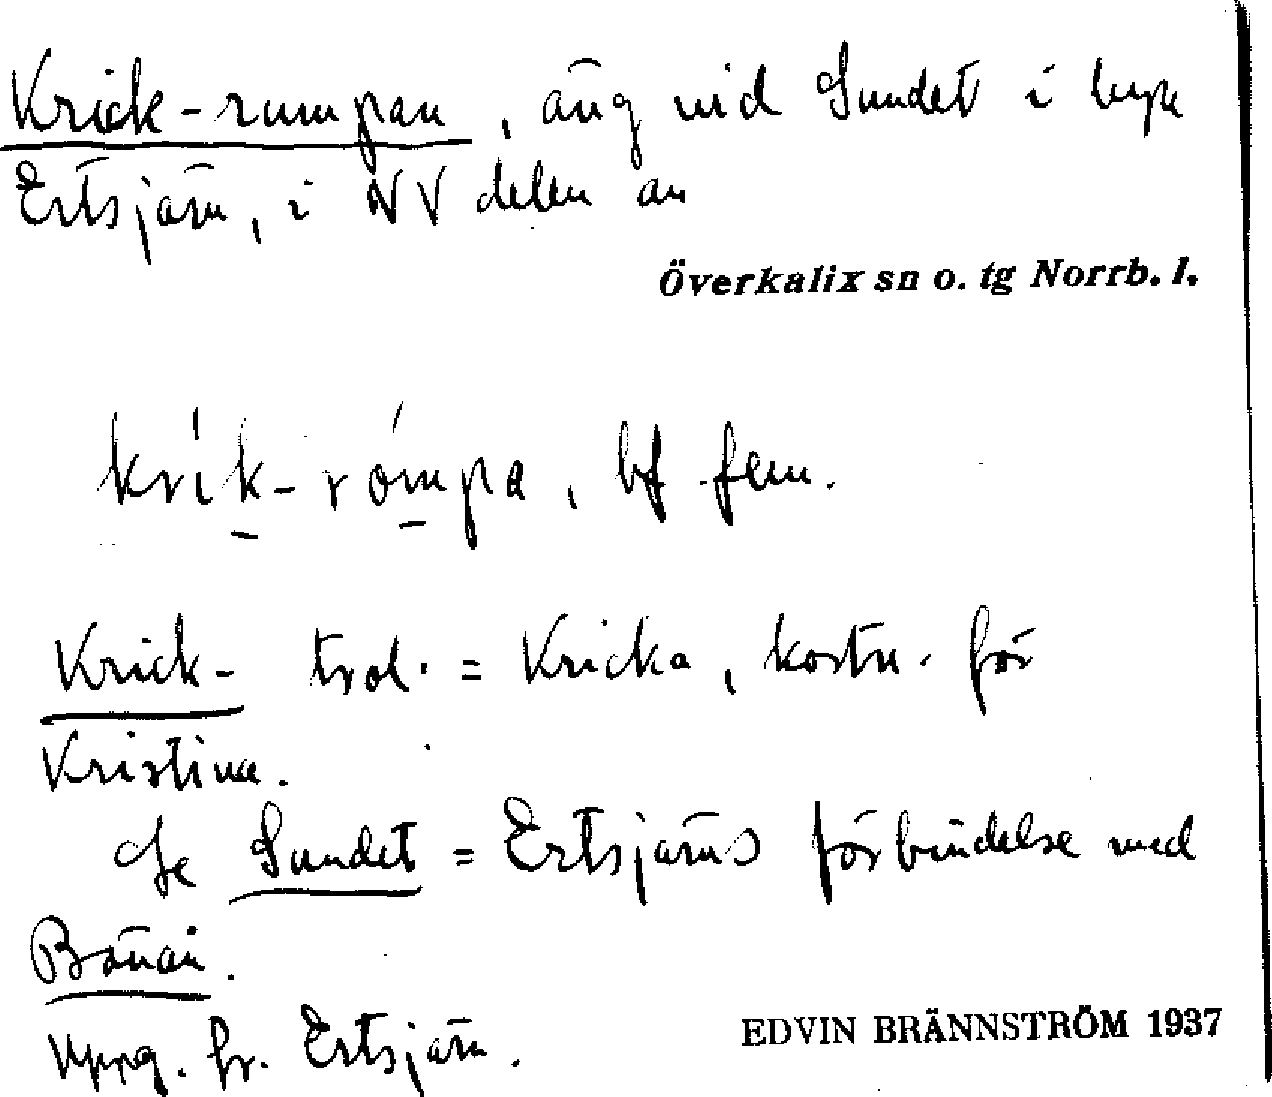 Krick-rumpan, äng vid Sundet i byn
Ertsjärv, i NV delen av
Överkalix sn o. tg Norrb. l.
krik-rómpa, bf fem.
Krick- trol. = Kricka, kortn. för
Kristina.
Se Sundet = Ertsjärvs förbindelse med
Bönån.
Uppg. fr. Ertsjärv.
EDVIN BRÄNNSTRÖM 1937